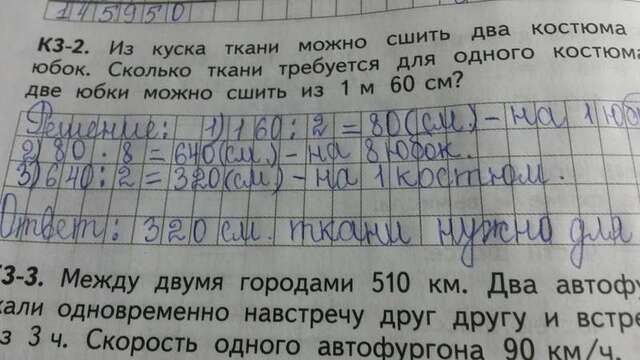 145950
К3-2. Из куска ткани можно сшить два костюма
юбок. Сколько ткани требуется для одного костюма
две юбки можно сшить из 1 м 60 см?
Решение: 1) 160 : 2 = 80 (см) - на 1 юб
2) 80 · 8 = 640 (см) - на 8 юбок.
3) 640 : 2 = 320 (см) - на 1 костюм.
Ответ: 320 см. ткани нужно для
К3-3. Между двумя городами 510 км. Два автофу
хали одновременно навстречу друг другу и встре
з 3 ч. Скорость одного автофургона 90 км/ч.